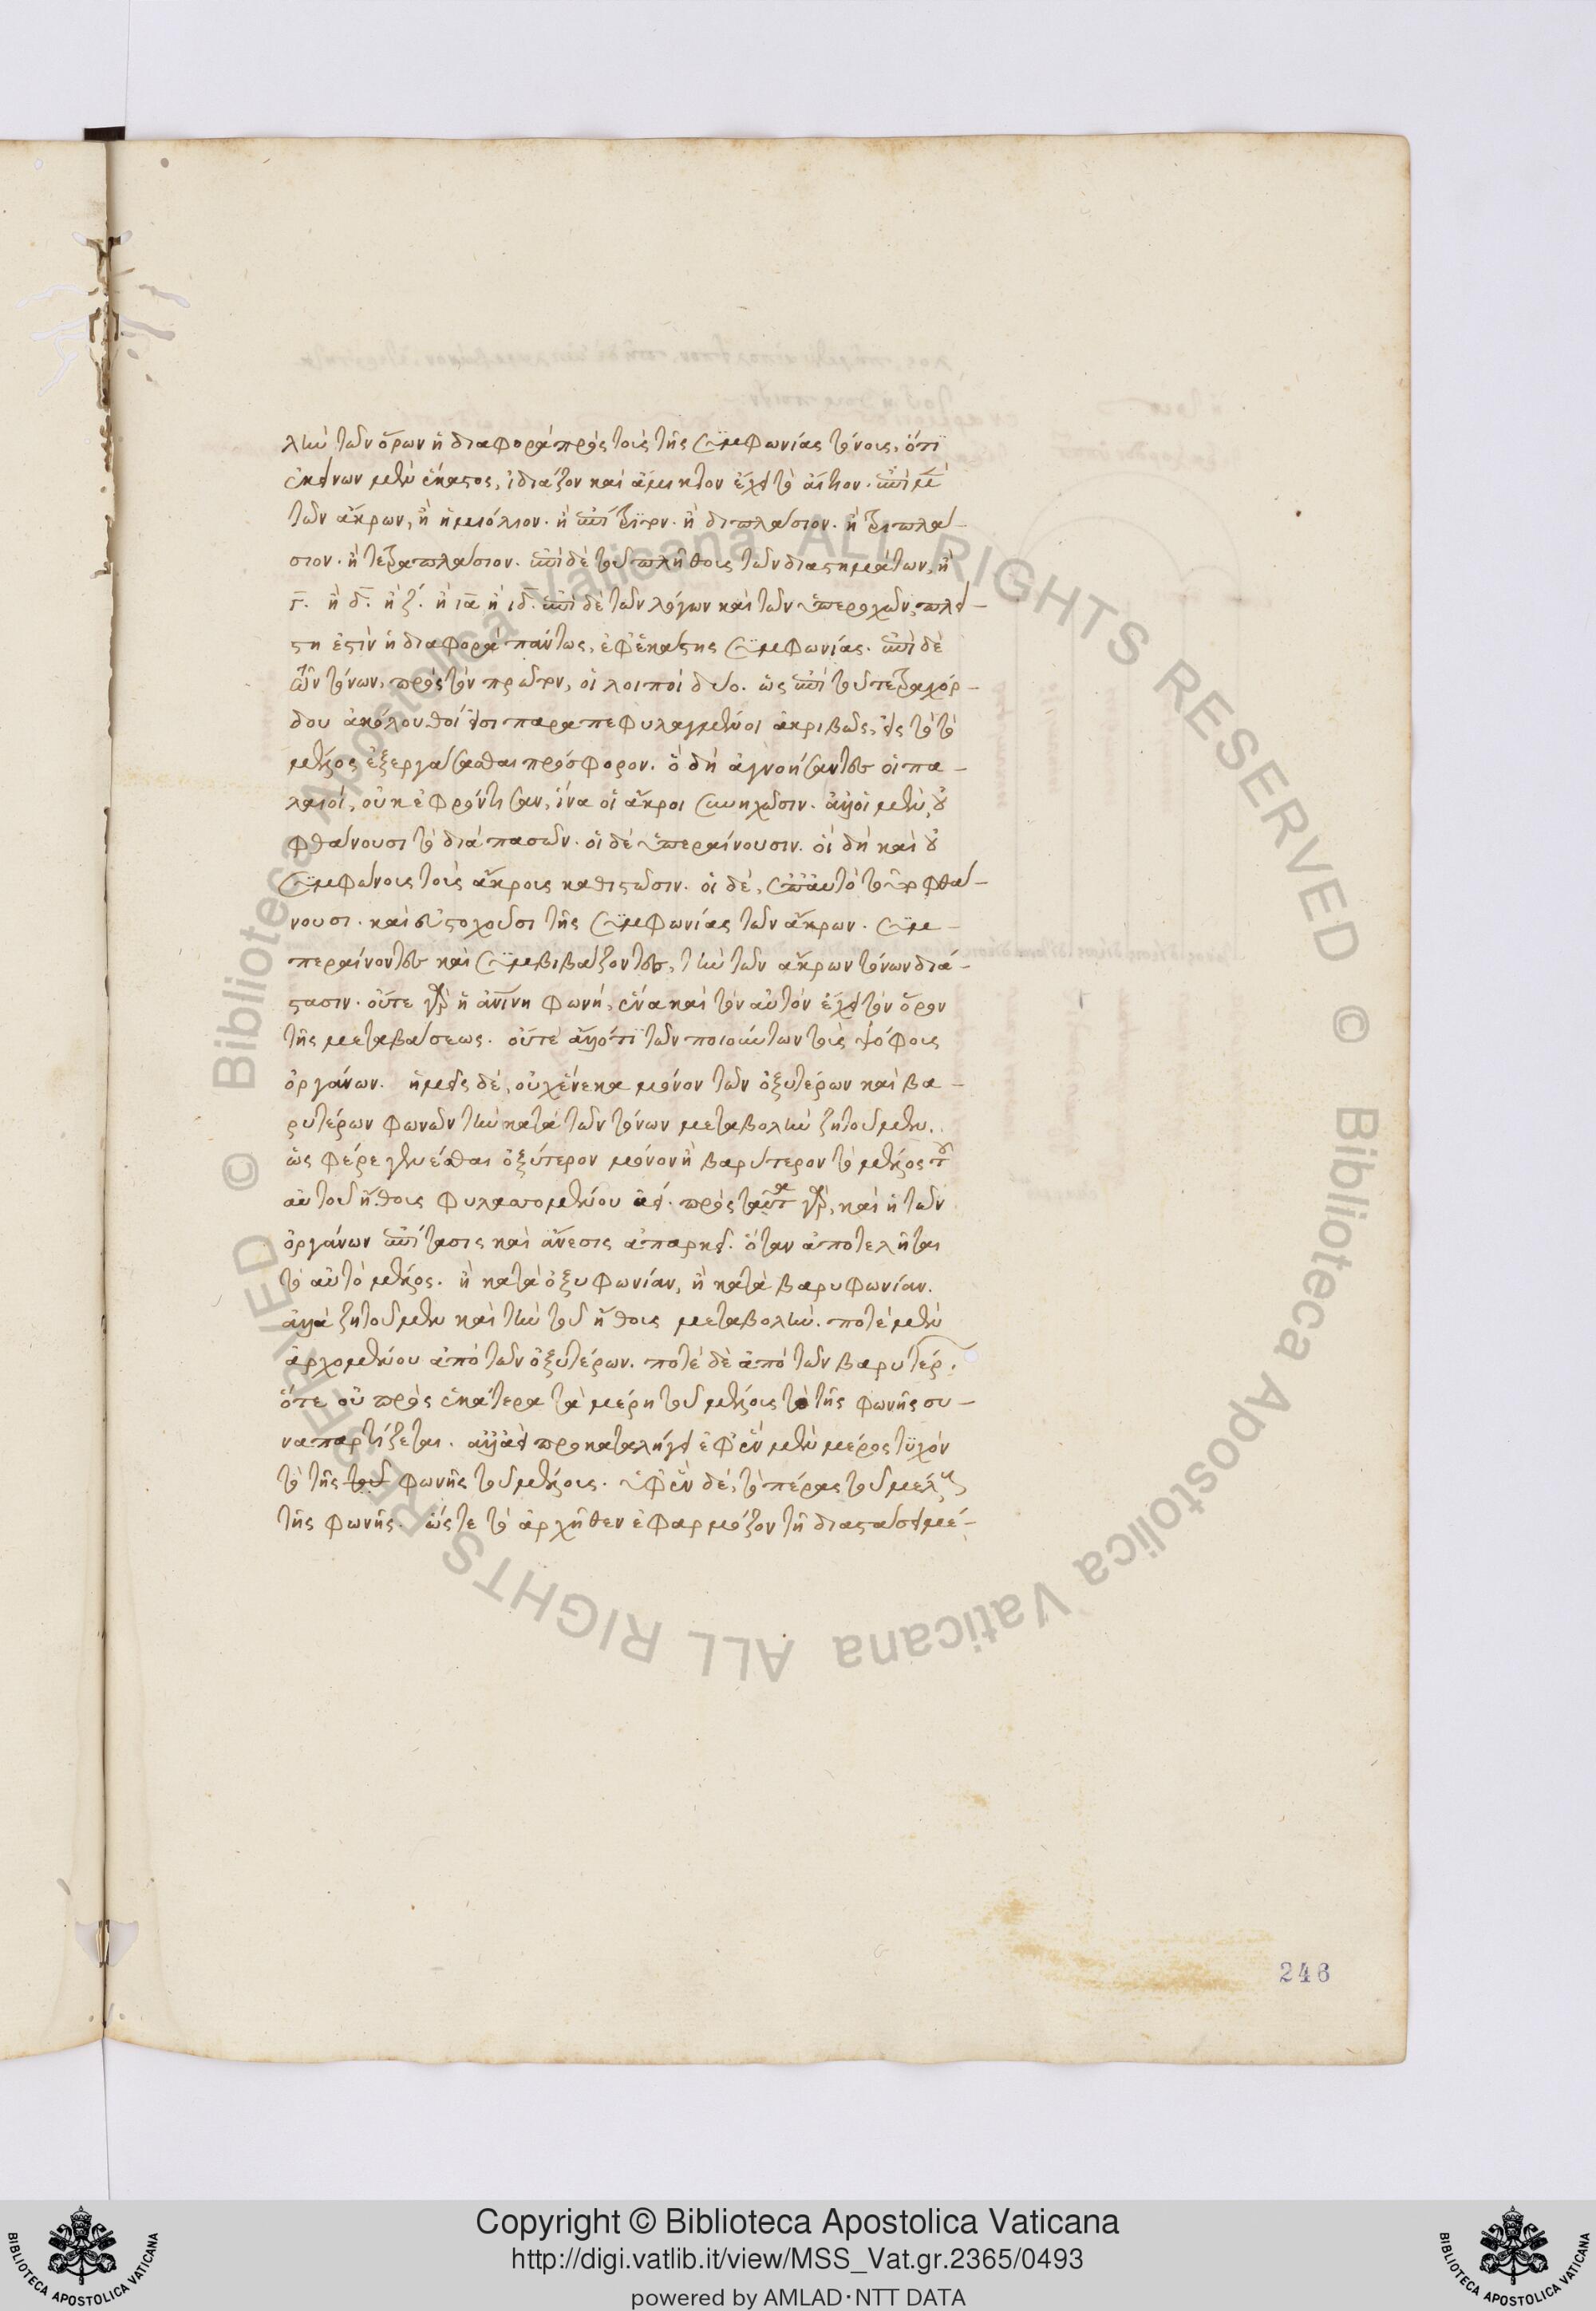 λὴν τῶν ὅρων ἡ διαφορὰ πρὸς τοὺς τῆς συμφωνίας τόνους, ὅτι
ἐκείνων μὲν ἕκαστος, ἰδιάζον καὶ ἄμικτον ἔχει τὸ αἴτιον. ἐπὶ μὲν
τῶν ἄκρων, ἢ ἡμιόλιον. ἢ ἐπίτριτον. ἢ διπλάσιον. ἢ τριπλά-
σιον. ἢ τετραπλάσιον. ἐπὶ δὲ τοῦ πλήθους τῶν διαστημάτων, ἢ
γ. ἢ δ. ἢ ζ. ἢ ια ἢ ιδ. ἐπὶ δὲ τῶν λόγων καὶ τῶν ὑπεροχῶν, πλεί-
στη ἐστὶν ἡ διαφορὰ πάντως, ἐφ' ἑκάστης συμφωνίας. ἐπὶ δὲ
τῶν τόνων, πρὸς τὸν πρῶτον, οἱ λοιποὶ δύο. ὡς ἐπὶ τοῦ τετραχόρ-
δου ἀκόλουθοί εἰσι παραπεφυλαγμένοι ἀκριβῶς, εἰς τὸ τὸ
μέλος ἐξεργάσασθαι πρόσφορον. ὃ δὴ ἀγνοήσαντες οἱ πα-
λαιοί, οὐκ ἐφρόντισαν, ἵνα οἱ ἄκροι συνηχῶσιν. ἀλλ' οἱ μὲν, οὐ
φθάνουσι τὸ διὰ πασῶν. οἱ δὲ ὑπεραίνουσιν. οἳ δὴ καὶ οὐ
συμφώνους τοὺς ἄκρους καθιστῶσιν. οἱ δέ, ἐπ' αὐτὸ τοῦτο φθά-
νουσι. καὶ εὐστοχοῦσι τῆς συμφωνίας τῶν ἄκρων. συμ-
περαίνοντες καὶ συμβιβάζοντες, τὴν τῶν ἄκρων τόνων διά-
στασιν. οὔτε γὰρ ἡ φωνή, ἕνα καὶ τὸν αὐτὸν ἔχει τὸν ὅρον
τῆς μεταβάσεως. οὔτε ἄλλό τι τῶν ποιούντων τοὺς ψόφους
ὀργάνων. ἡμεῖς δέ, οὐχ ἕνεκα μόνον τῶν ὀξυτέρων καὶ βα-
ρυτέρων φωνῶν τὴν κατὰ τῶν τόνων μεταβολὴν ζητοῦμεν.
ὡς φέρε γενέσθαι ὀξύτερον μόνον ἢ βαρύτερον τὸ μέλος τοῦ
αὐτοῦ ἤθους φυλαττομένου ἀεί. πρὸς ταῦτα γὰρ, καὶ ἡ τῶν
ὀργάνων ἐπίτασις καὶ ἄνεσις ἀπαρκεῖ. ὅταν ἀποτελῆται
τὸ αὐτὸ μέλος. ἢ κατὰ ὀξυφωνίαν, ἢ κατὰ βαρυφωνίαν.
ἀλλὰ ζητοῦμεν καὶ τὴν τοῦ ἤθους μεταβολήν. ποτὲ μὲν
ἀρχομένου ἀπὸ τῶν ὀξυτέρων. ποτὲ δὲ ἀπὸ τῶν βαρυτέρων.
ὅτε οὐ πρὸς ἑκάτερα τὰ μέρη τοῦ μέλους τὸ τῆς φωνῆς συ-
ναπαρτίζεται. ἀλλ' ἀεὶ προκαταλήγει ἐφ' ἓν μὲν μέρος τυχὸν
τὸ τῆς τοῦ φωνῆς τοῦ μέλους. ἐφ' ἓν δέ, τὸ πέρας τοῦ μέλους
τῆς φωνῆς. ὥστε τὸ ἀρχῆθεν ἐφαρμόζον τῇ διαστάσει μέ-
246
Copyright © Biblioteca Apostolica Vaticana
http://digi.vatlib.it/view/MSS_Vat.gr.2365/0493
powered by AMLAD·NTT DATA